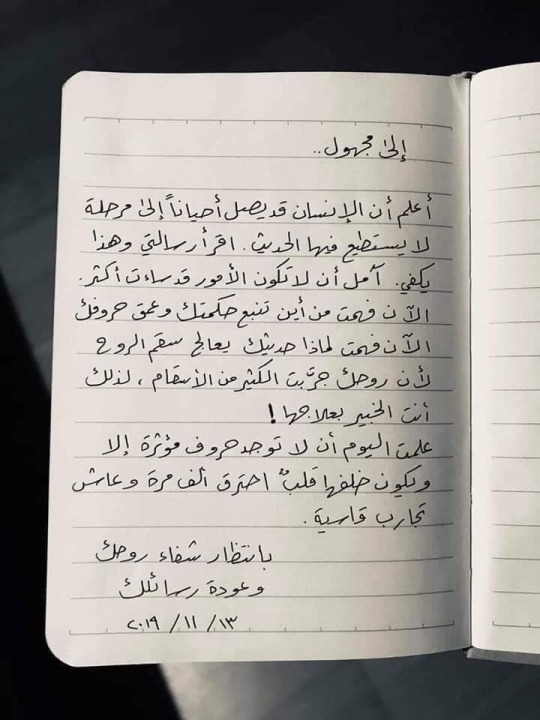 إلىٰ مجهول..
أعلم أن الإنسان قد يصل أحياناً إلىٰ مرحلة
لا يستطيع فيها الحديث. اقرأ رسالتي وهذا
يكفي. آمل أن لا تكون الأمور قد ساءت أكثر.
الآن فهمت من أين تنبع حكمتك وعمق حروفك
الآن فهمت لماذا حديثك يعالج سقم الروح
لأن روحك جرَّبت الكثير من الأسقام، لذلك
أنت الخبير بعلاجها!
علمت اليوم أن لا توجد حروف مؤثرة إلا
ويكون خلفها قلبٌ احترق ألف مرة وعاش
تجارب قاسية.
بانتظار شفاء روحك
وعودة رسائلك
١٣/ ١١/ ٢٠١٩